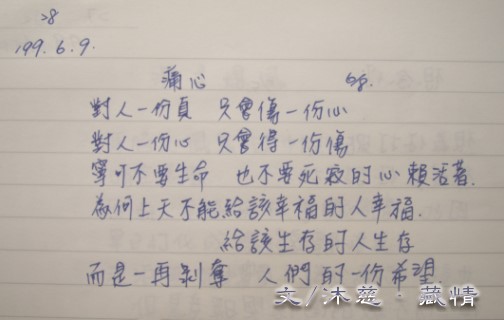 28
'99.6.9.
痛心
對人一份真 只會傷一份心
對人一份心 只會得一份傷
寧可不要生命 也不要死寂的心賴活著.
為何上天不能給該幸福的人幸福.
給該生存的人生存
而是一再剝奪 人們的一份希望.
文/沐慈·藏情